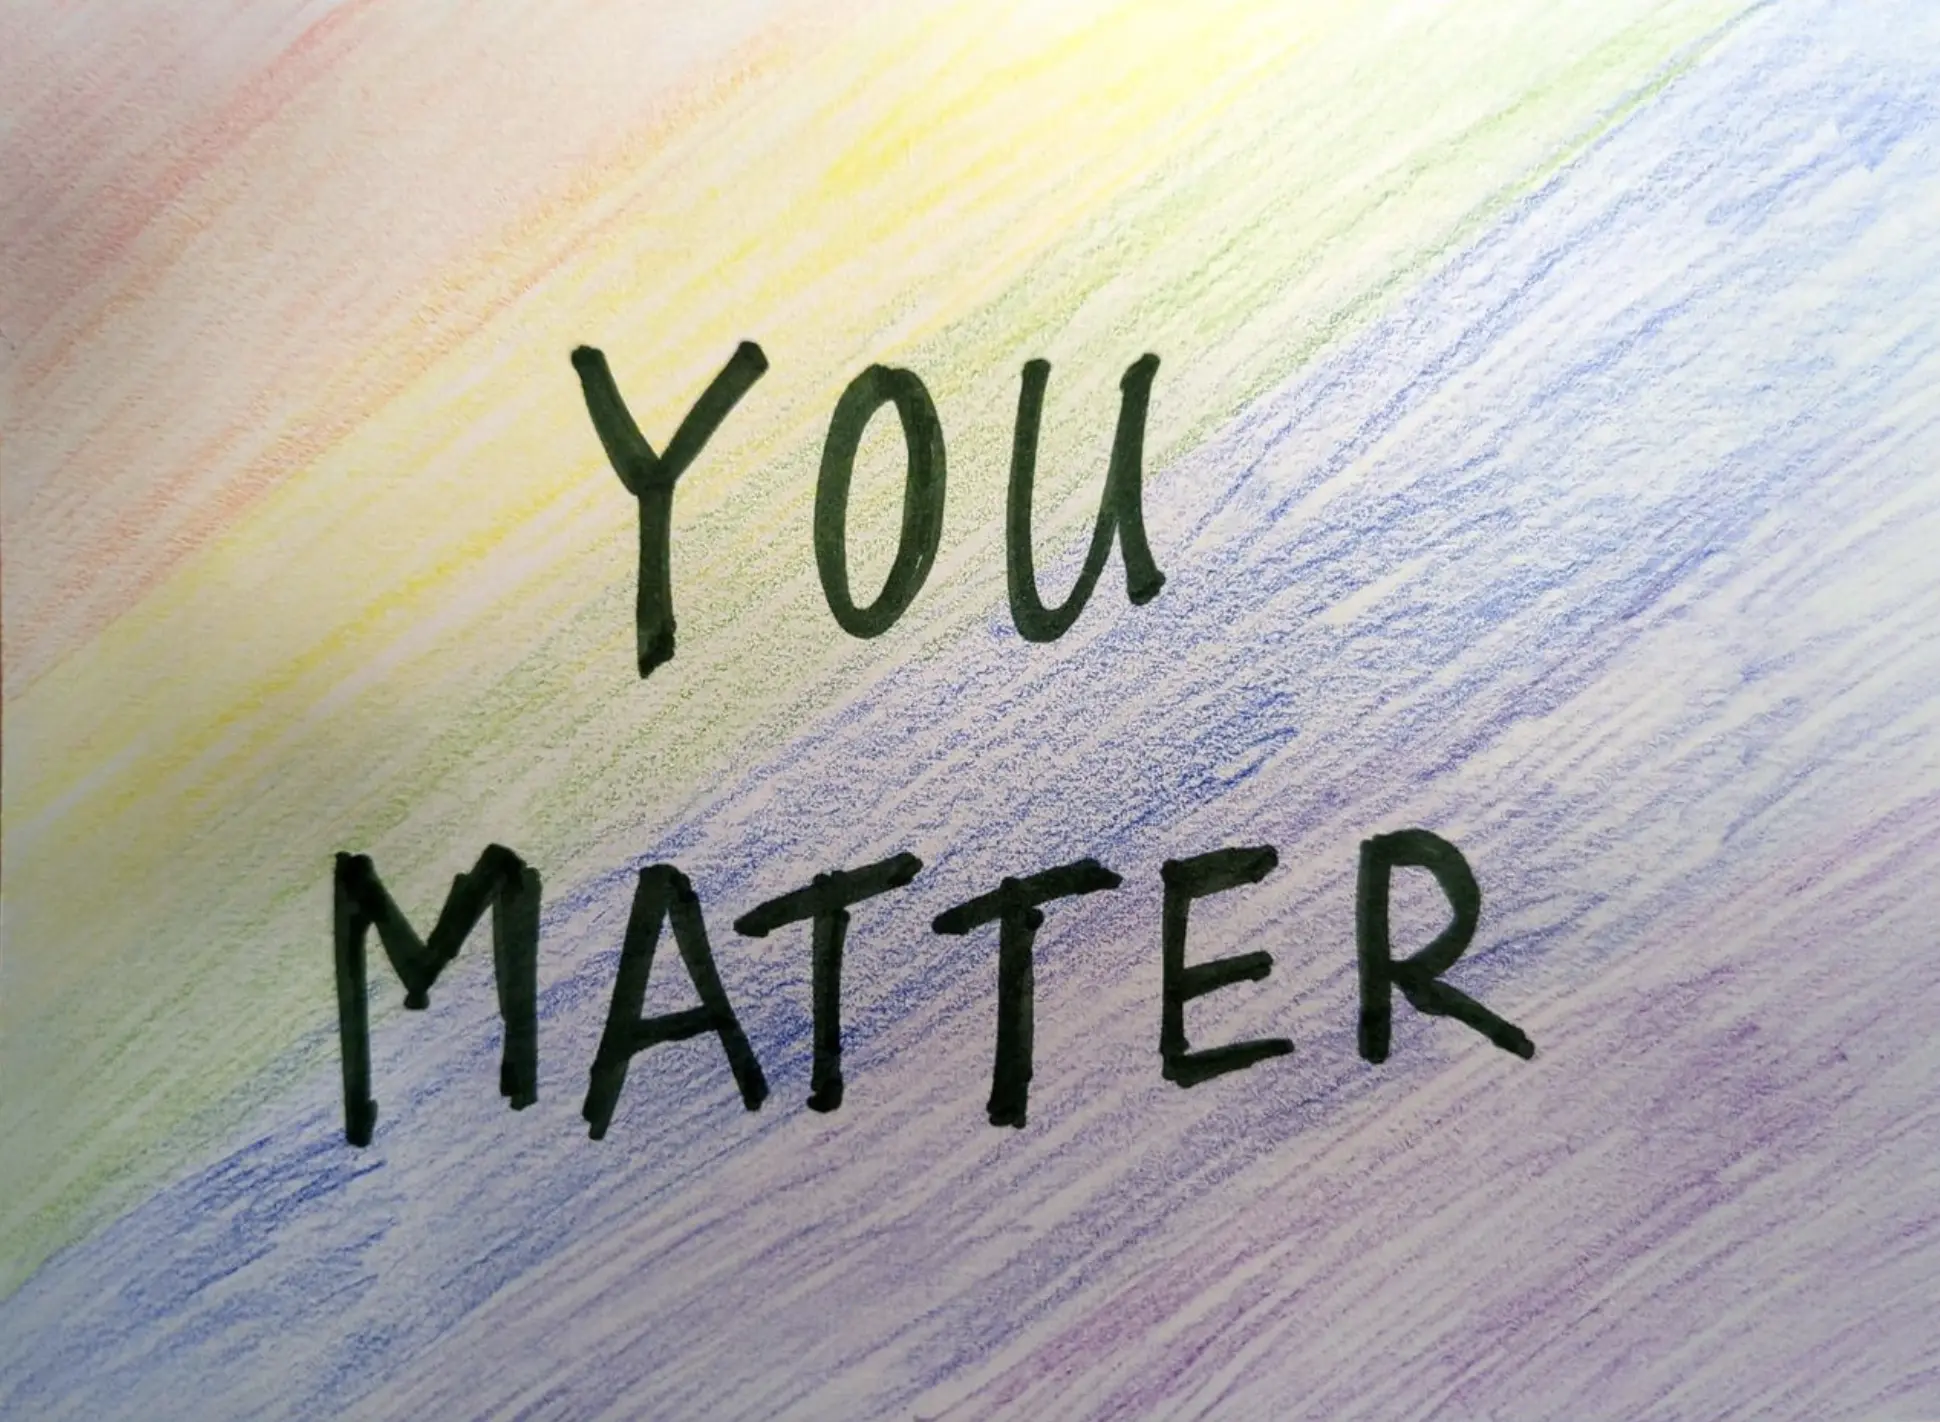 YOU
MATTER